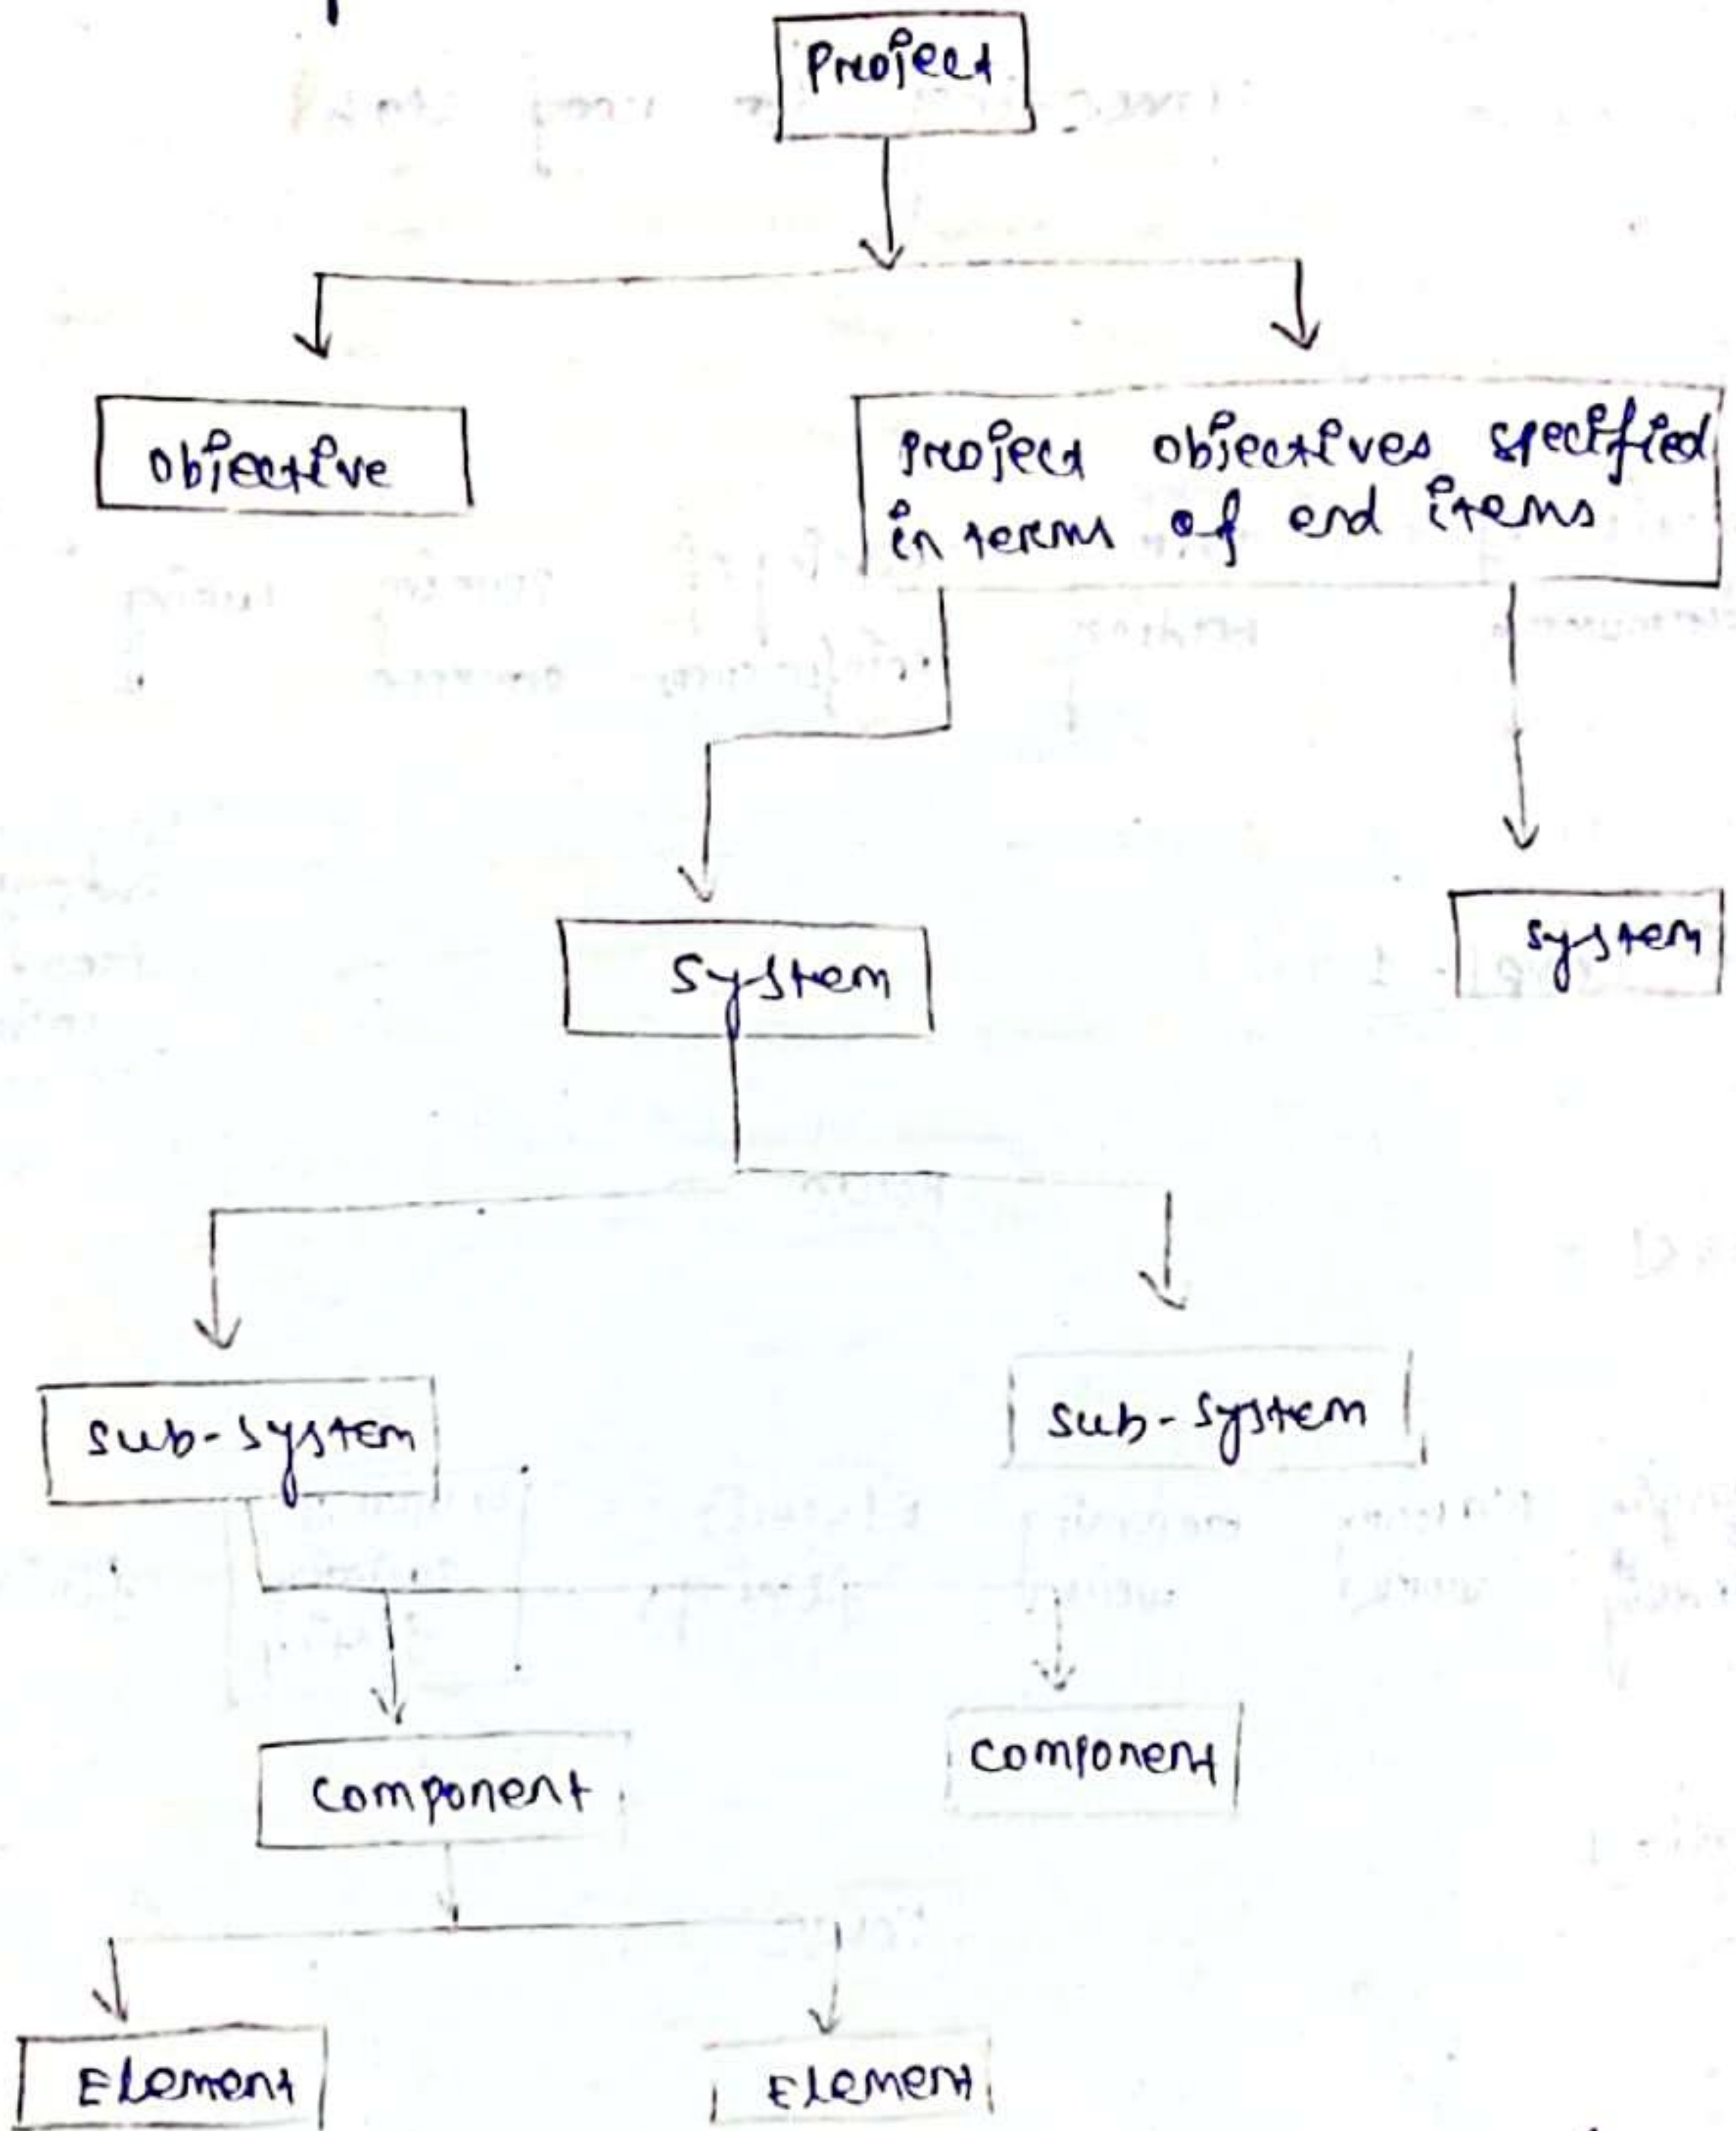 Project
Objective
Project objectives specified
in terms of end items
System
System
Sub-System
Sub-System
Component
Component
Element
Element